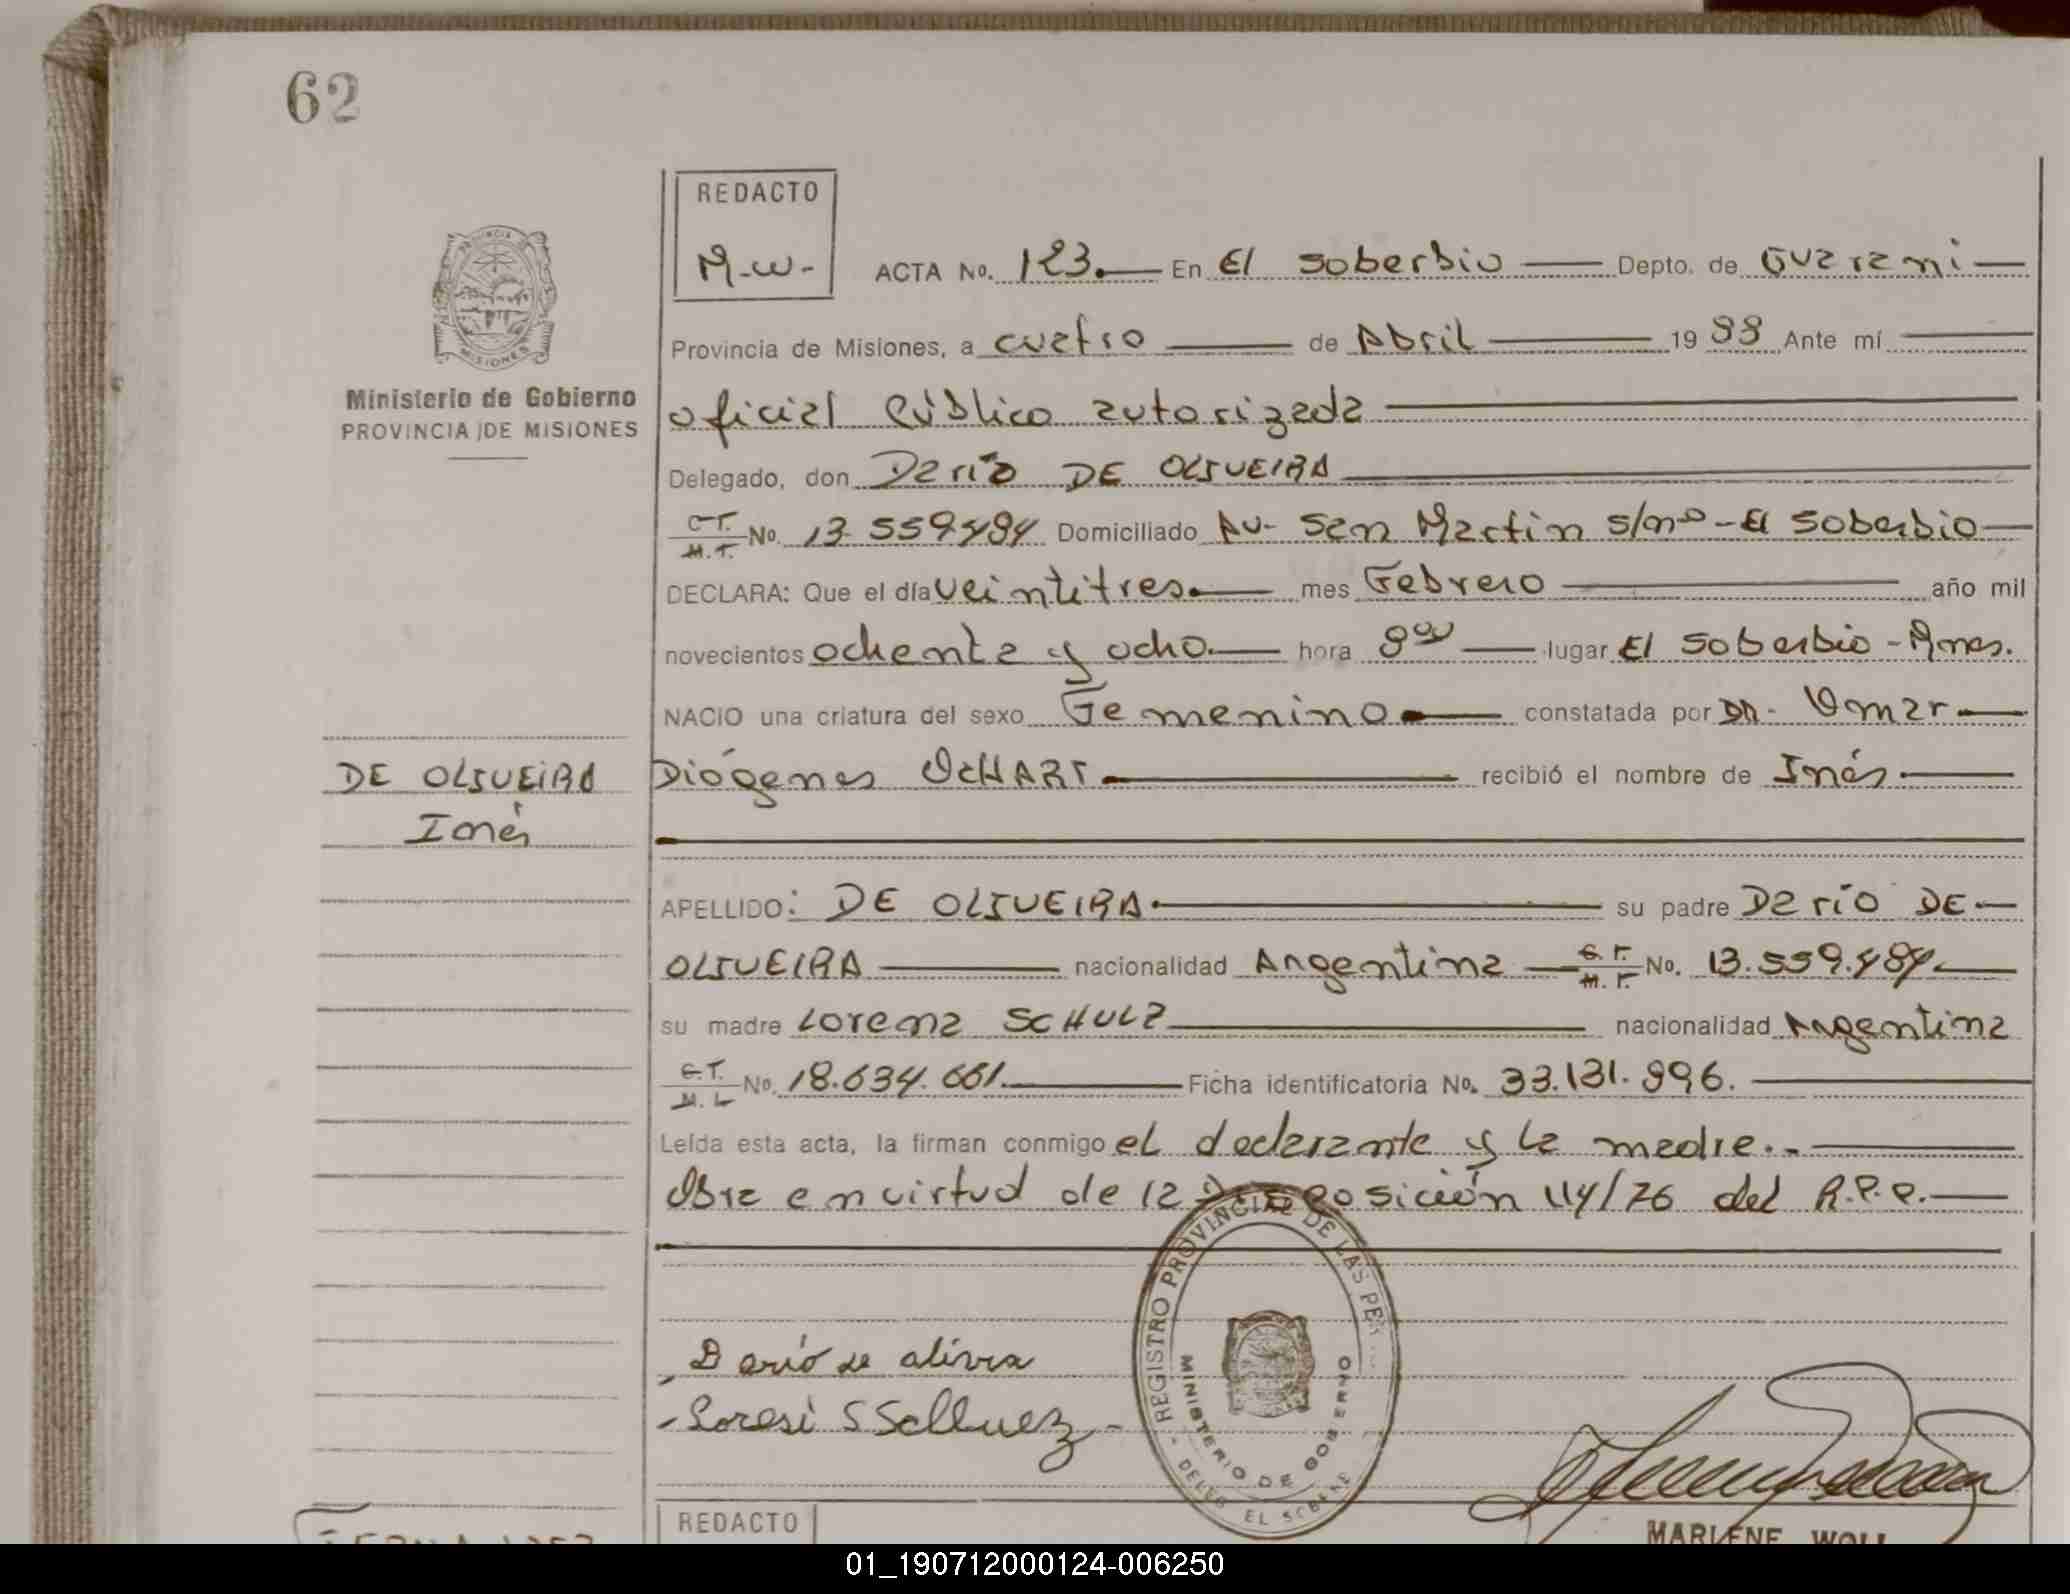 62
REDACTO
M-W-
ACTA No. 123. En El Soberbio Depto. de Guarani
Provincia de Misiones, a cuatro de Abril 1988 Ante mí
Ministerio de Gobierno
PROVINCIA DE MISIONES
oficial Público autorizada
Delegado, don Darío DE OLIVEIRA
C.I. M.I. No. 13.559.484 Domiciliado Av- San Martin s/nº - El Soberbio
DECLARA: Que el día veintitres mes Febrero año mil
novecientos ochenta y ocho hora 8:00 lugar El Soberbio - Mnes.
NACIO una criatura del sexo Femenino constatada por DR. Omar
DE OLIVEIRA
Inés
Diógenes OCHART recibió el nombre de Inés
APELLIDO: DE OLIVEIRA su padre Darío DE
OLIVEIRA nacionalidad Argentina C.I. M.I. No. 13.559.484
su madre Lorena SCHULZ nacionalidad Argentina
C.I. M.I. No. 18.634.661. Ficha identificatoria No. 33.131.996.
Leída esta acta, la firman conmigo el declarante y la madre.-
Obra en virtud de la Disposición 114/76 del R.P.P.
REGISTRO PROVINCIAL DE LAS PER
MINISTERIO DE GOBIERNO
DELEG. EL SOBERB
Darío de
REDACTO
MARLENE WOLL
01_190712000124-006250